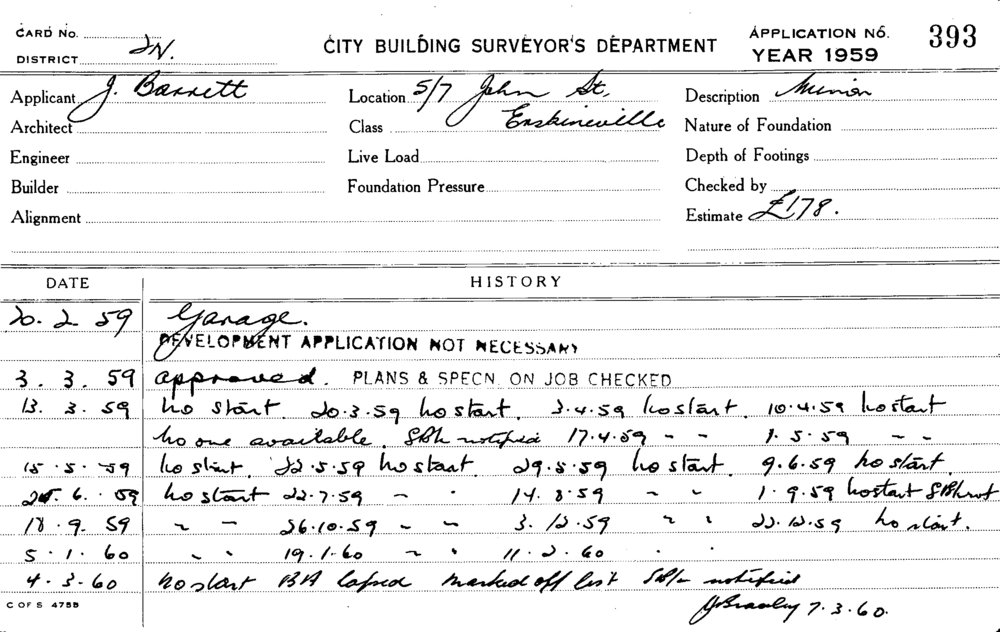 CARD No.
DISTRICT 2N.
CITY BUILDING SURVEYOR'S DEPARTMENT
APPLICATION No. 393
YEAR 1959
Applicant J. Barrett
Location 5/7 John St,
Description Minor
Architect
Class Erskineville
Nature of Foundation
Engineer
Live Load
Depth of Footings
Builder
Foundation Pressure
Checked by
Alignment
Estimate £178.
DATE HISTORY
20. 2. 59 Garage.
DEVELOPMENT APPLICATION NOT NECESSARY
3. 3. 59 approved. PLANS & SPECN. ON JOB CHECKED
13. 3. 59 no start. 20.3.59 no start. 3.4.59 no start. 10.4.59 no start
no one available. notified 17.4.59 " " 1.5.59 " "
15.5.59 no start. 22.5.59 no start. 29.5.59 no start. 9.6.59 no start.
6.59 no start 22.7.59 " " 14.8.59 " " 1.9.59 no start
18.9.59 " " 26.10.59 " " 3.12.59 " " 22.12.59 no start.
5.1.60 " " 19.1.60 " " 11.2.60 " "
4.3.60 no start BA lapsed marked off list notified
7.3.60.
C OF S 475B